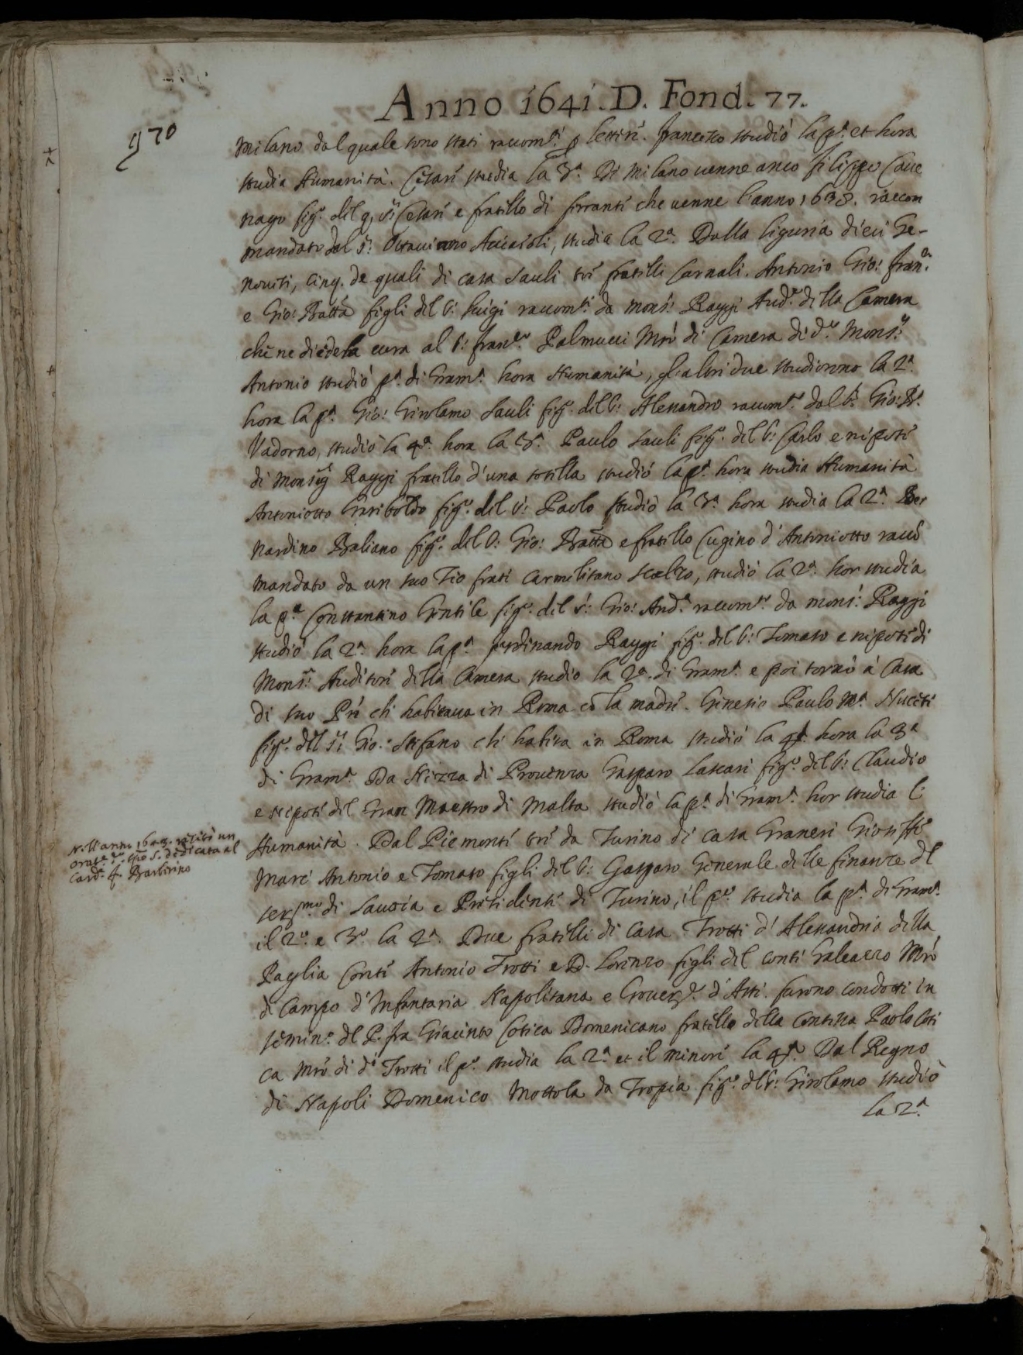 Anno 1641. D. Fond. 77.
970
Milano dal quale sono stati racom.ti p lettere. Francesco studiò la p.a et hora
studia Humanità. Cesare studia la 3.a Di Milano venne anco Filippo Cave
nago fig.o del q. Cesare e fratello di Ferrante che venne l'anno 1638. raccom
mandato dal S.r Ottaviano Acciaioli, studia la 2.a Dalla liguria dieci Ge-
novesi, cinq. de quali di casa Sauli tre fratelli carnali. Antonio Gio: Fran.co
e Gio: Batta figli del S.r Luigi racom.ti da Mons.r Raggi Aud.re della Camera
che ne diede la cura al S.r Fran.co Palmucci Mro di Camera di d.o Mons.re
Antonio studiò p.a di Gram.a hora Humanità, gl'altri due studiorono la 2.a
hora la p.a Gio: Girolamo Sauli fig.o del S.r Alessandro racom.to dal S.r Gio: B.
Vadorno, studiò la 4.a hora la 3.a Paulo Sauli fig.o del S.r Carlo e nipote
di Mons.r Raggi fratello d'una sorella studiò la p.a hora studia Humanità
Antoniotto Gariboldo fig.o del S.r Paolo studiò la 3.a hora studia la 2.a Ber
nardino Baliano fig.o del S.r Gio: Batta e fratello cugino d'Antoniotto raco
mandato da un suo Zio frate Carmelitano scalzo, studiò la 2.a hor studia
la p.a Constantino Gentile fig.o del S.r Gio: And.a racom.to da Mons.r Raggi
studiò la 2.a hora la p.a Ferdinando Raggi fig.o del S.r Tomaso e nipote di
Mons.r Auditore della Camera studiò la 2.a di Gram.a e poi tornò à Casa
di suo Pre che habitava in Roma co la madre. Ginesio Paulo M.a Nuceti
fig.o del S.r Gio: Stefano che habita in Roma studiò la 4.a hora la 3.a
di Gram.a Da Nizza di Provenza Gasparo Lascari fig.o del S.r Claudio
e nipote del Gran Maestro di Malta studiò la p.a di Gram.a hor studia l'
Humanità. Dal Piemonte tre da Turino di casa Graneri Gioseffo
Marc'Antonio e Tomaso figli del S.r Gasparo Generale delle finanze del
Ser.mo di Savoia e Presidente di Turino, il p.o studia la p.a di Gram.a
il 2.o e 3.o la 2.a Due fratelli di casa Trotti d'Alessandria della
Paglia Conte Antonio Trotti e D. Lorenzo figli del Conte Galeazzo Mro
di Campo d'Infantaria Napolitana e Govern.re d'Asti furono condotti in
semin.o del P. fra Giacinto Cotica Domenicano fratello della Contessa Paola Coti
ca Mre di d.i Trotti il p.o studia la 2.a et il minore la 4.a Dal Regno
di Napoli Domenico Mottola da Tropia fig.o del S.r Girolamo studiò
la 2.a
Nell'anno 1642 recitò un
orat.e dedicata al
Card. Barberino